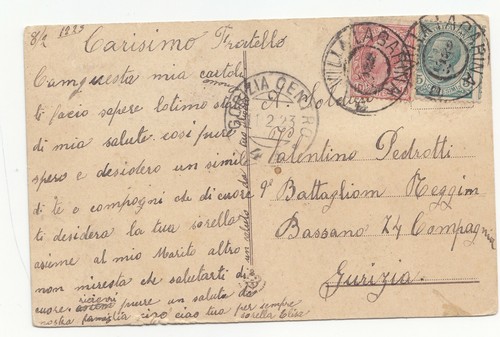 8/2 1923
Carisimo Fratello
Canquesta mia cartoli
ti facio sapere lotimo stato
di mia salute cosi pure
spero e desidero un simile
di te e compagni che di cuore
ti desidera la tua sorella
asieme al mio Marito altro
non miresta che salutarti di
cuore ricievi pure un saluto da
nostra famiglia ciao ciao tua per sempre
sorella Elisa
VILLA LAGARINA
VILLA LAGARINA
GORIZIA CENTRO
12.2.23
Al Soldato
Valentino Pedrotti
9º Battagliom Reggim
Bassano 74 Compagnia
Gurizia